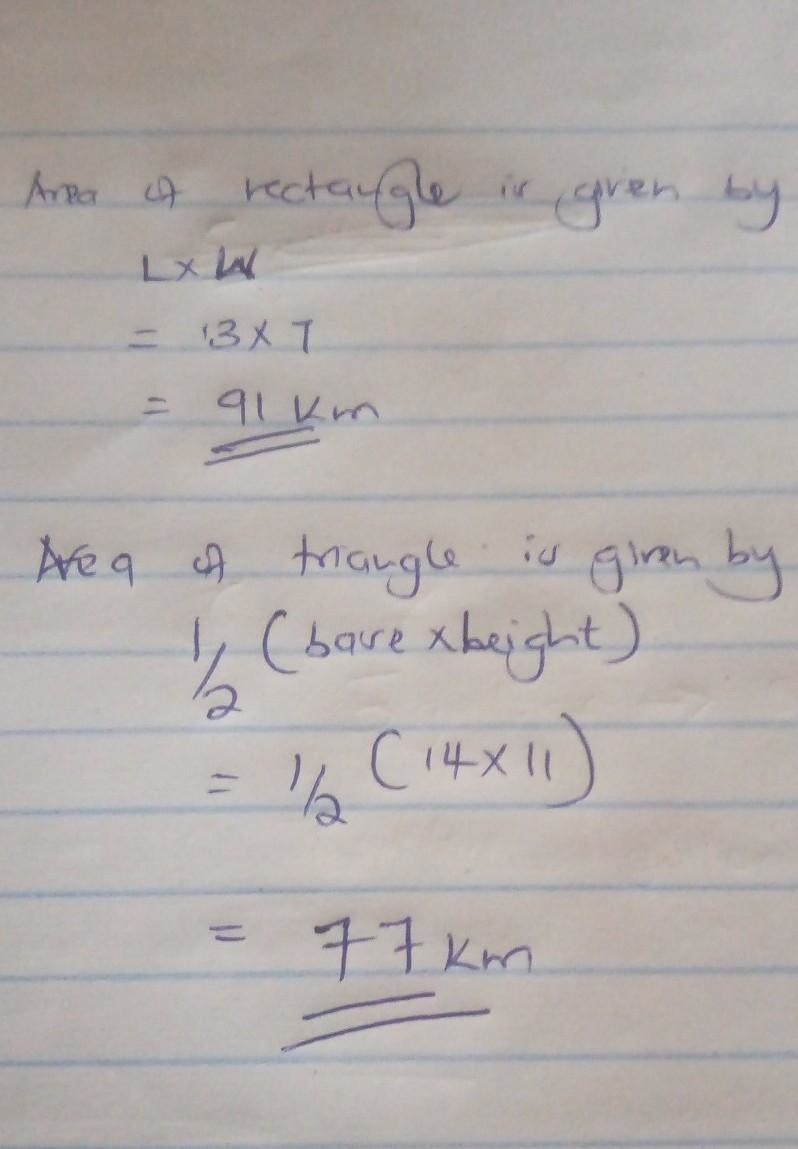 Area of rectangle is given by
L x W
= 13 x 7
= 91 Km
Area of triangle is given by
1/2 (base x height)
= 1/2 (14 x 11)
= 77 Km